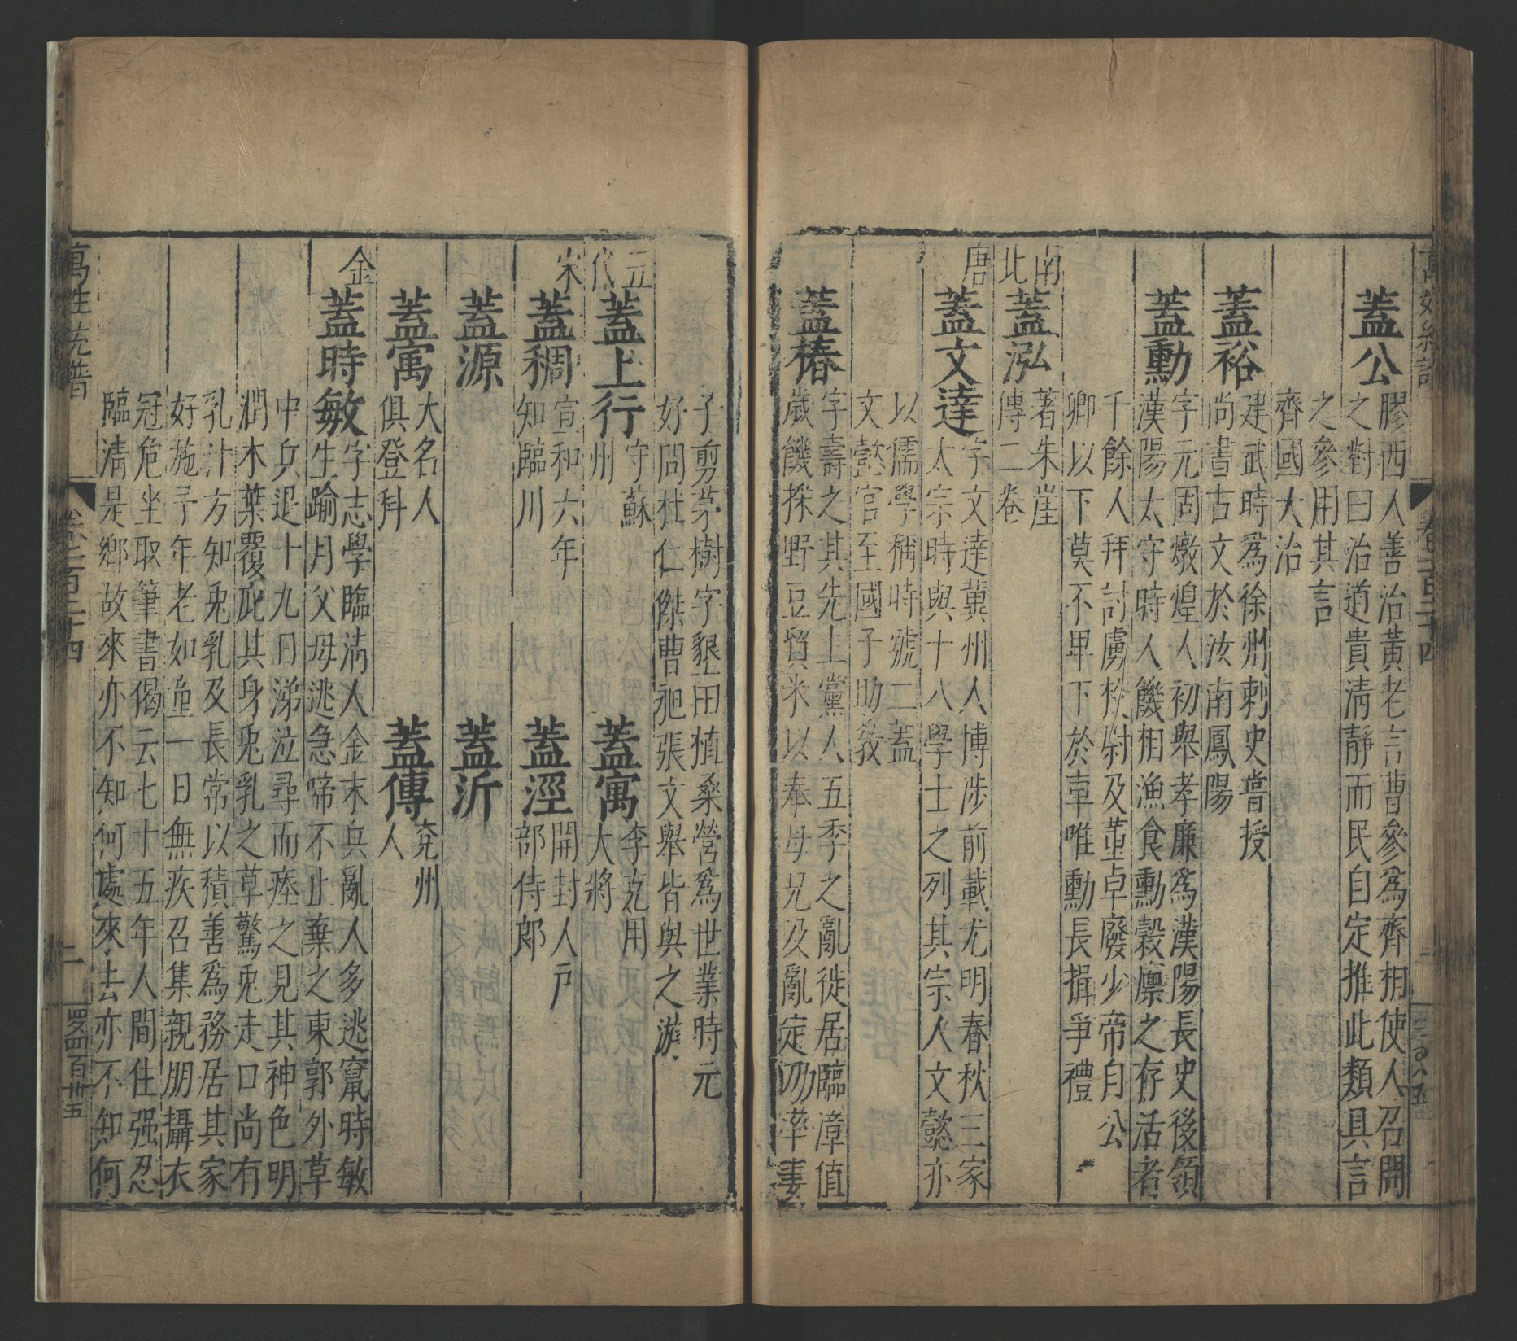 蓋公
膠西人善治黃老言曹參為齊相使人召問
之對曰治道貴清靜而民自定推此類具言
之參用其言
齊國大治
蓋裕
建武時為徐州刺史嘗授
尚書古文於汝南鳳陽
蓋勳
字元固燉煌人初舉孝廉為漢陽長史後領
漢陽太守時人饑相漁食勳穀廩之存活者
千餘人拜討虜校尉及董卓廢少帝自公
卿以下莫不卑下於卓唯勳長揖爭禮
南
北
蓋泓
著朱崖
傳二卷
唐
蓋文達
字文達冀州人博涉前載尤明春秋三家
太宗時與十八學士之列其宗人文懿亦
以儒學稱時號二蓋
文懿官至國子助敎
蓋椿
字壽之其先上黨人五季之亂徙居臨漳值
歲饑採野豆貿米以奉母兄及亂定仍率妻
子剪茅樹字墾田植桑營為世業時元
好問杜仁傑曹㞙張文舉皆與之游
五
代
蓋上行
守蘇
州
蓋寓
李克用
大將
宋
蓋稠
宣和六年
知臨川
蓋淫
開封人戶
部侍郎
蓋源
蓋沂
蓋寓
大名人
俱登科
蓋傳
兗州
人
金
蓋時敏
字志學臨淸人金末兵亂人多逃竄時敏
生踰月父母逃急啼不止棄之東郭外草
中兵退十九日涕泣尋而瘞之見其神色明
潤木葉覆其身兎乳之草驚兎走口尚有
乳汁方知兎乳及長常以積善為務居其家
好施予年老如童一日無疾召集親朋攝衣
冠危坐取筆書偈云七十五年人間住强忍
臨清是鄉故來亦不知何處來去亦不知何
萬姓統譜
卷一百二十四
二